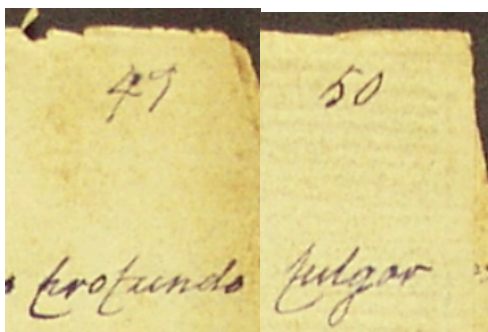 49
profundo
50
fulgor